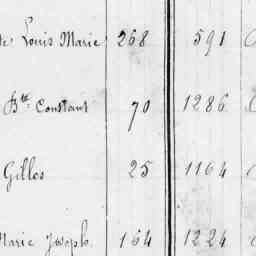 de Louis Marie 268 591
Bte Constant 70 1286
Gilles 25 1164
Marie Joseph 164 1224